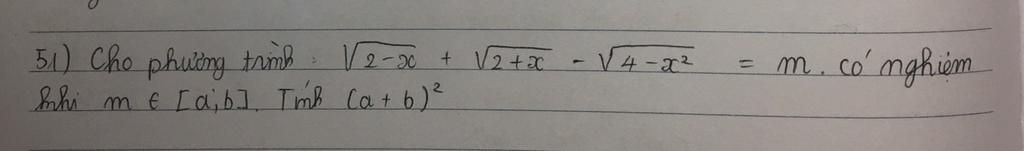 51) Cho phương trình : √2-x + √2+x - √4-x² = m. có nghiệm
khi m ∈ [a;b]. Tính (a + b)²